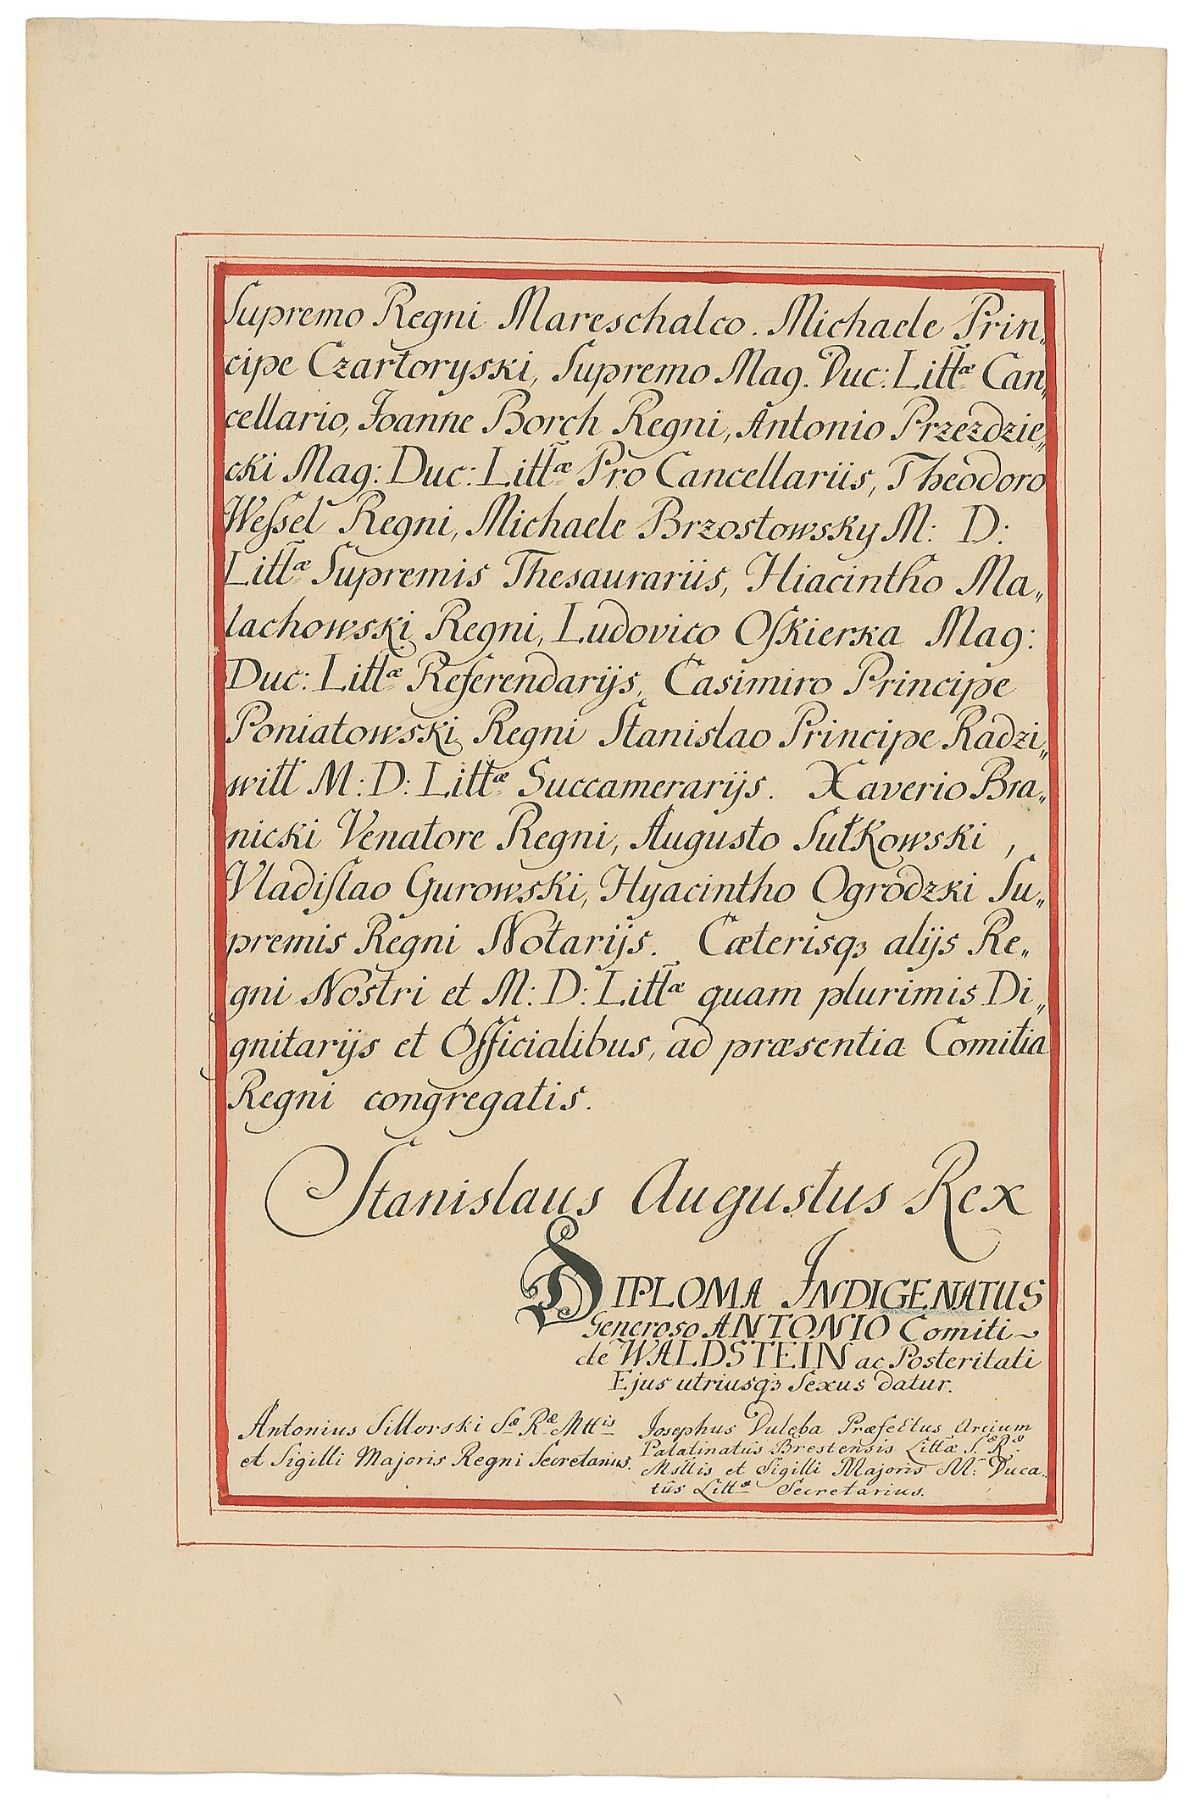 Supremo Regni Mareschalco. Michaele Prin„
cipe Czartoryski, Supremo Mag. Duc: Littæ Can„
cellario, Joanne Borch Regni, Antonio Przezdzie„
cki Mag: Duc: Littæ Pro Cancellariis, Theodoro
Weſsel Regni, Michaele Brzostowsky M: D:
Littæ Supremis Thesaurariis, Hiacintho Ma„
lachowski Regni, Ludovico Oſkierka Mag:
Duc: Littæ Referendarijs, Casimiro Principe
Poniatowski Regni Stanislao Principe Radzi„
witt M: D: Littæ Succamerarijs. Xaverio Bra„
nicki Venatore Regni, Augusto Sułkowski ,
Vladiſlao Gurowski, Hyacintho Ogrodzki Su„
premis Regni Notarijs. Cæterisqꝫ alijs Re„
gni Nostri et M: D: Littæ quam plurimis Di„
gnitarijs et Officialibus, ad præsentia Comitia
Regni congregatis.
Stanislaus Augustus Rex
DIPLOMA INDIGENATUS
Generoso ANTONIO Comiti~
de WALDSTEIN ac Posteritati
Ejus utriusqꝫ Sexus datur.
Antonius Sikorski Sæ Ræ Mttis
et Sigilli Majoris Regni Secretarius.
Josephus Duleba Præfectus Arcium
Palatinatus Brestensis Littæ S: R:
Msttis et Sigilli Majoris M: Duca„
tus Littæ Secretarius.